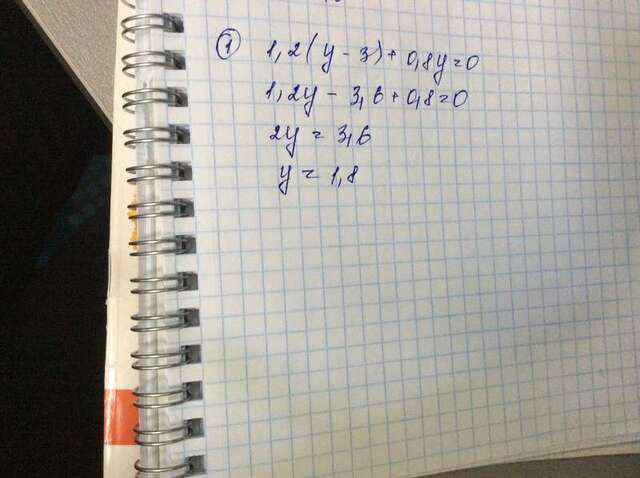 ① 1,2(y-3)+0,8y=0
1,2y-3,6+0,8=0
2y=3,6
y=1,8